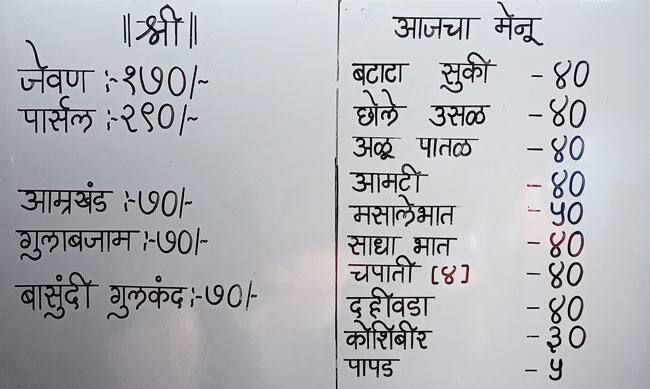 ॥ श्री ॥
जेवण :- १७०/-
पार्सल :- २९०/-
आम्रखंड :- ७०/-
गुलाबजाम :- ७०/-
बासुंदी गुलकंद :- ७०/-
आजचा मेनू
बटाटा सुकी - ४०
छोले उसळ - ४०
अळू पातळ - ४०
आमटी - ४०
मसालेभात - ५०
साधा भात - ४०
चपाती [४] - ४०
दहीवडा - ४०
कोशिंबीर - ३०
पापड - ५